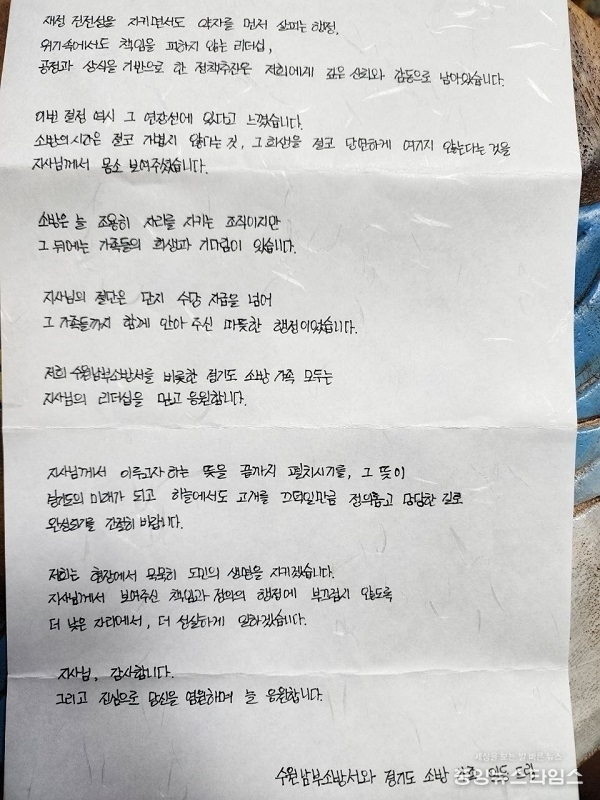 재정 건전성을 지키면서도 약자를 먼저 살피는 행정,
위기속에서도 책임을 피하지 않는 리더십,
공정과 상식을 기반으로 한 정책추진은 저희에게 깊은 신뢰와 감동으로 남아있습니다.
이번 결정 역시 그 연장선에 있다고 느꼈습니다.
소방의 시간은 결코 가볍지 않다는 것, 그 희생을 결코 당연하게 여기지 않는다는 것을
지사님께서 몸소 보여주셨습니다.
소방은 늘 조용히 자리를 지키는 조직이지만
그 뒤에는 가족들의 희생과 기다림이 있습니다.
지사님의 결단은 단지 수당 지급을 넘어
그 가족들까지 함께 안아 주신 따뜻한 행정이었습니다.
저희 수원남부소방서를 비롯한 경기도 소방 가족 모두는
지사님의 리더십을 믿고 응원합니다.
지사님께서 이루고자 하는 뜻을 끝까지 펼치시기를, 그 뜻이
미래가 되고 하늘에서도 고개를 끄덕일만큼 정의롭고 당당한 길로
완성되기를 간절히 바랍니다.
저희는 현장에서 묵묵히 도민의 생명을 지키겠습니다.
지사님께서 보여주신 책임과 정의의 행정에 부끄럽지 않도록
더 낮은 자리에서, 더 성실하게 일하겠습니다.
지사님, 감사합니다.
그리고 진심으로 당신을 염원하며 늘 응원합니다.
세상을 보는 밝은 뉴스
수원남부소방서와 경기도 소방 가족 일동 드림
중앙뉴스타임스